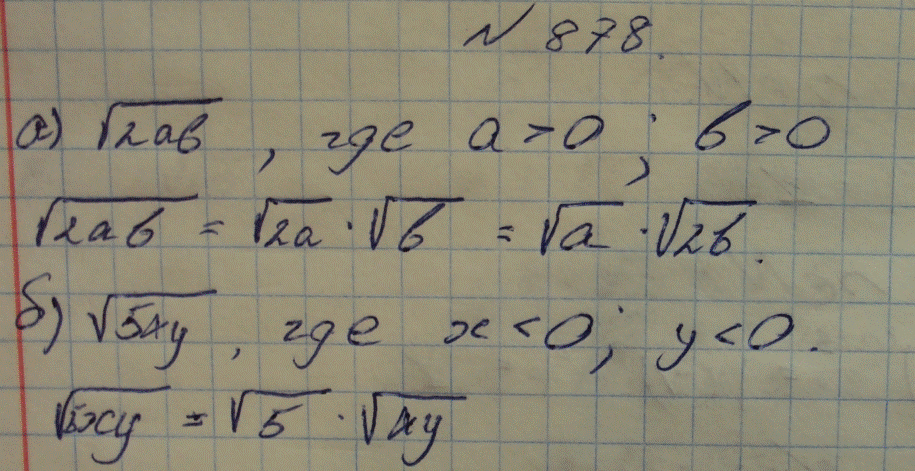 № 878.
а) √2ab, где a > 0; b > 0
√2ab = √2a · √b = √a · √2b.
б) √5xy, где x < 0; y < 0.
√5xy = √5 · √xy